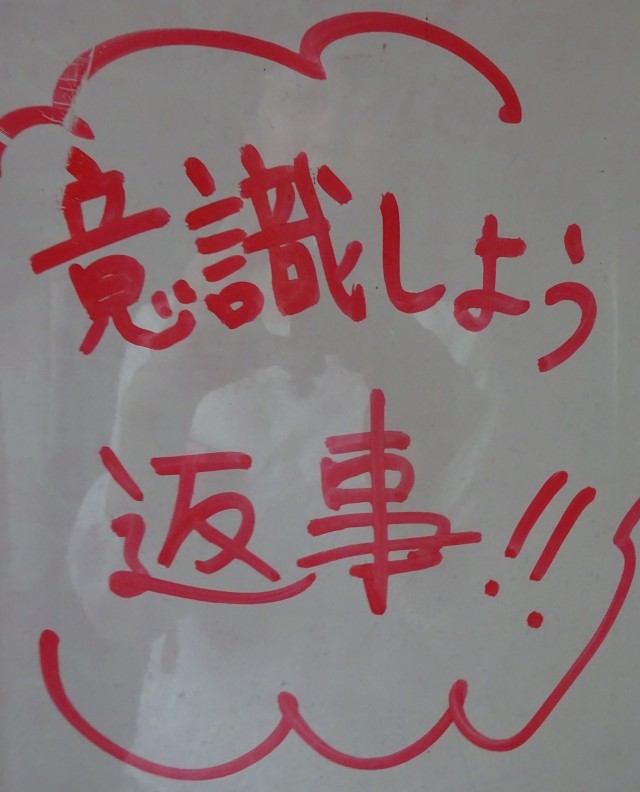 意識しよう
返事!!